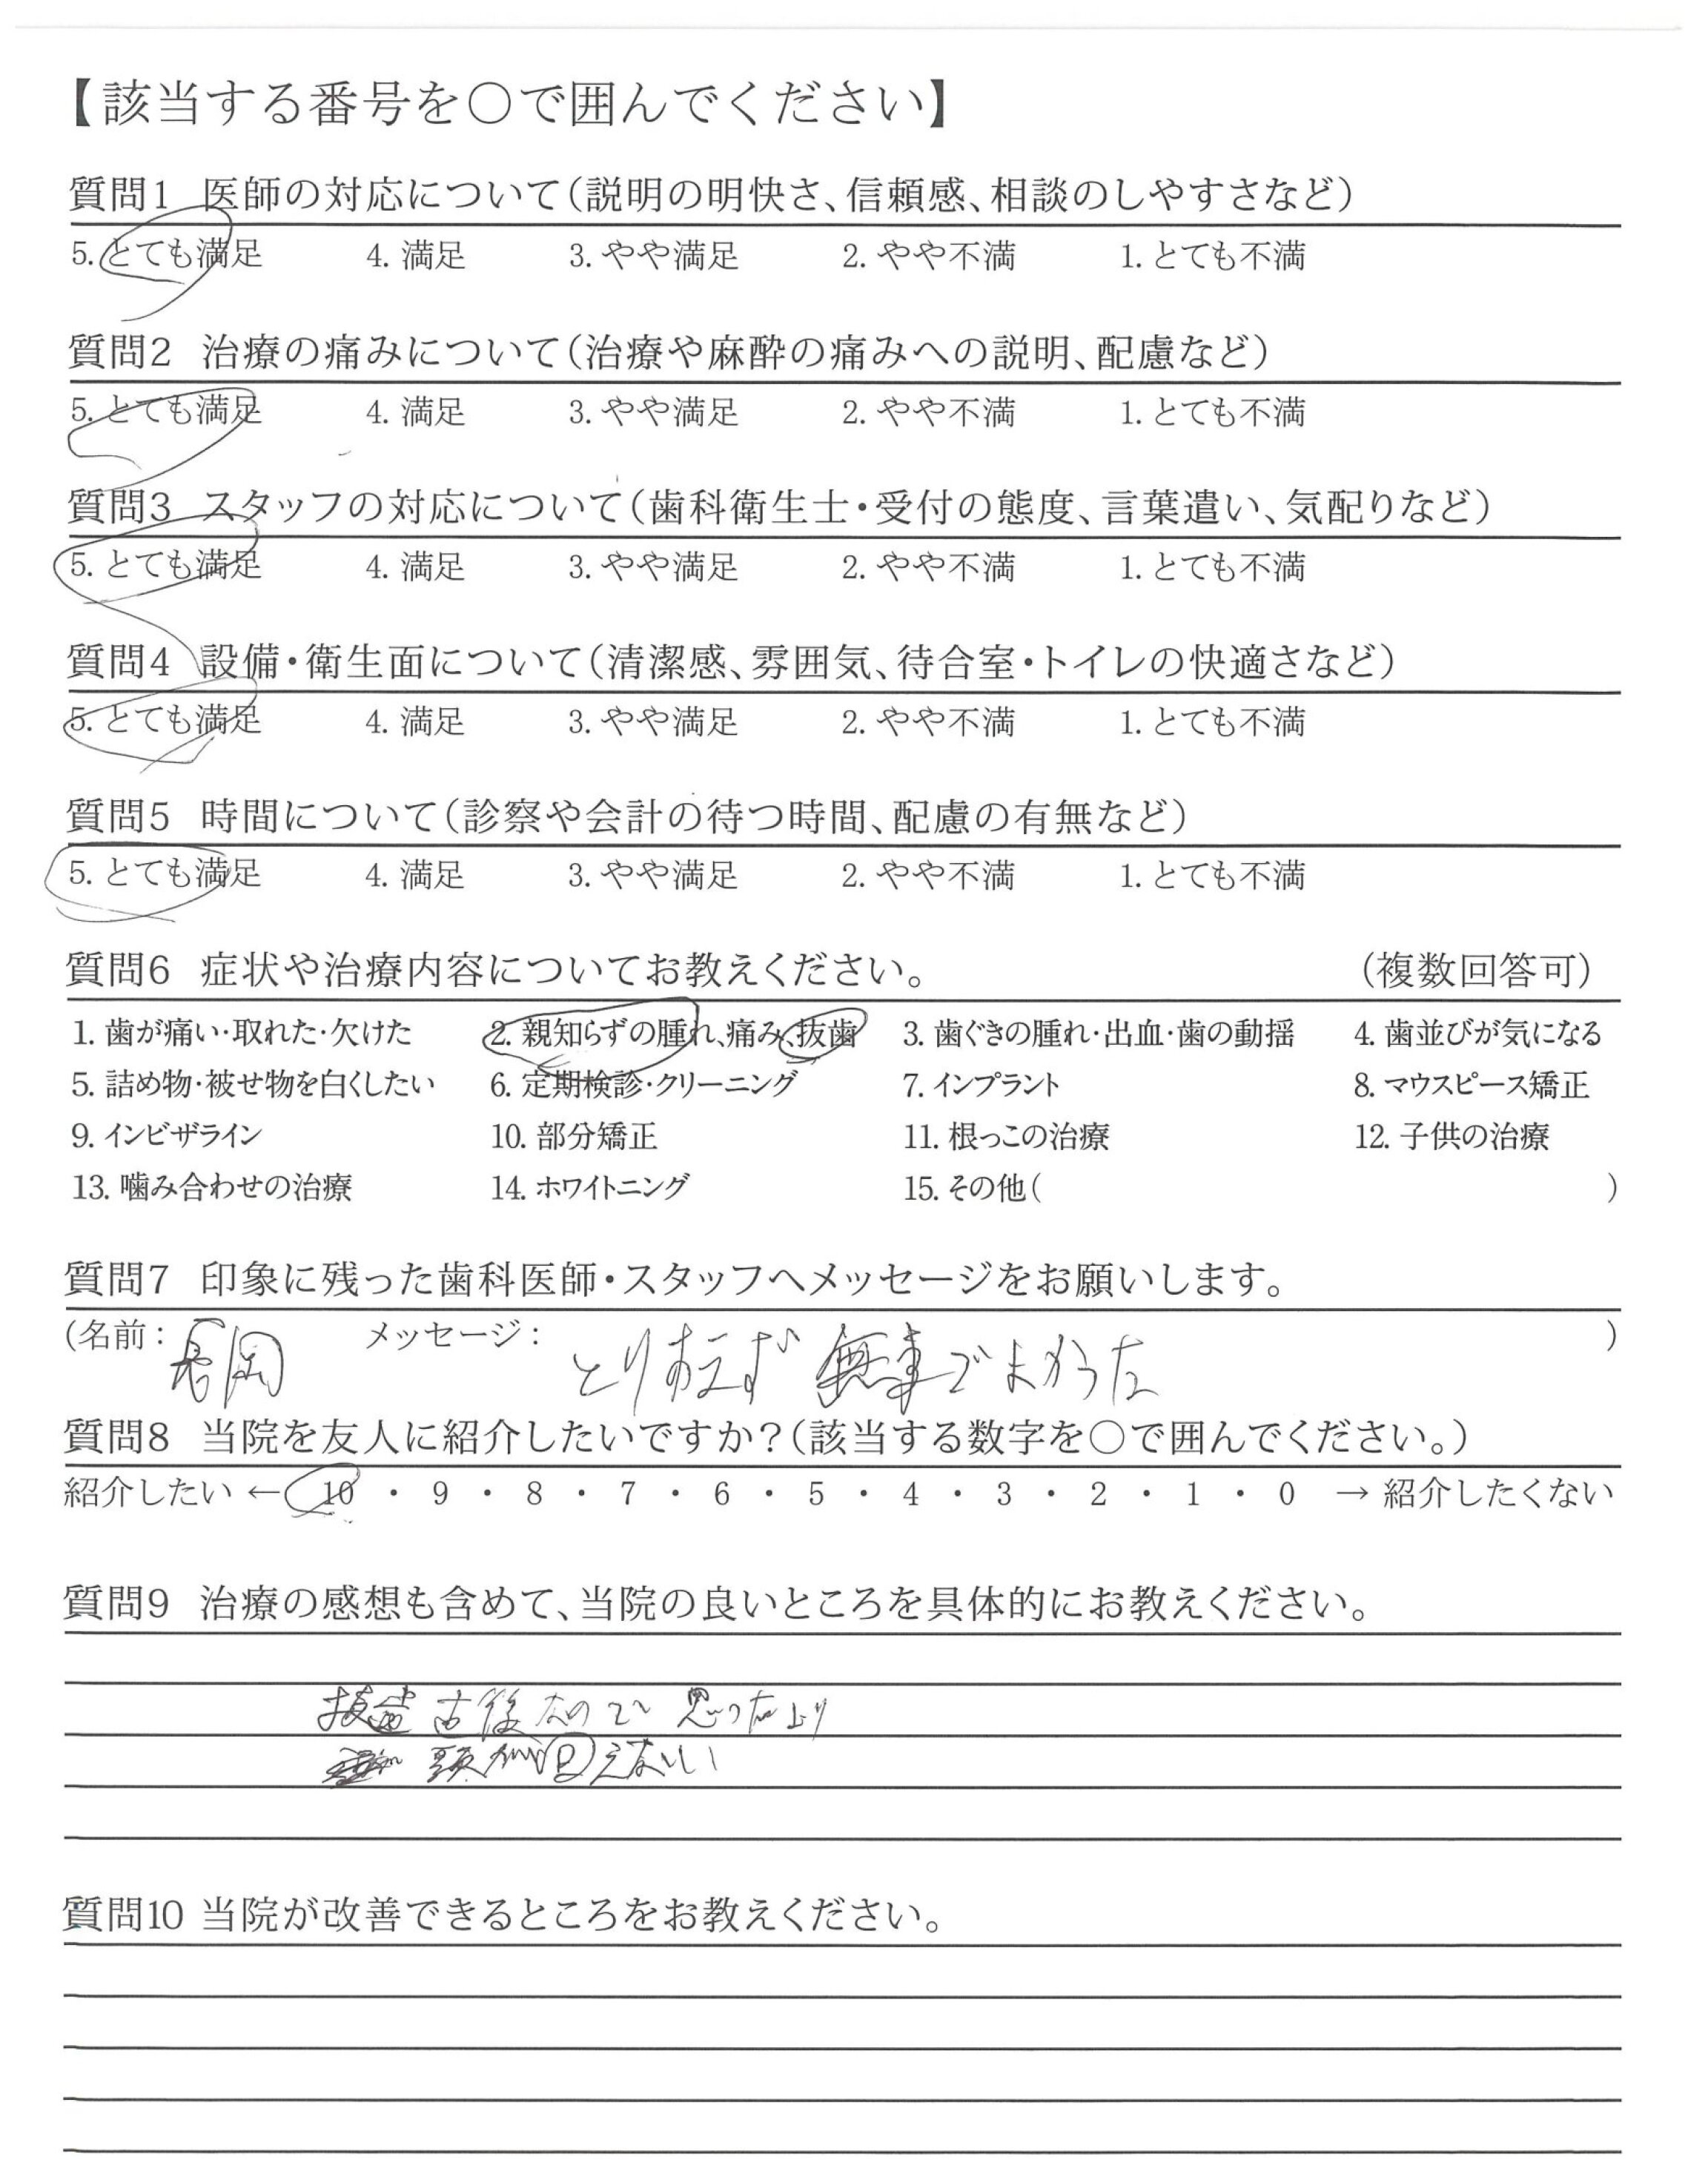 【該当する番号を○で囲んでください】
質問1 医師の対応について(説明の明快さ、信頼感、相談のしやすさなど)
5. とても満足 4. 満足 3. やや満足 2. やや不満 1. とても不満
質問2 治療の痛みについて(治療や麻酔の痛みへの説明、配慮など)
5. とても満足 4. 満足 3. やや満足 2. やや不満 1. とても不満
質問3 スタッフの対応について(歯科衛生士・受付の態度、言葉遣い、気配りなど)
5. とても満足 4. 満足 3. やや満足 2. やや不満 1. とても不満
質問4 設備・衛生面について(清潔感、雰囲気、待合室・トイレの快適さなど)
5. とても満足 4. 満足 3. やや満足 2. やや不満 1. とても不満
質問5 時間について(診察や会計の待つ時間、配慮の有無など)
5. とても満足 4. 満足 3. やや満足 2. やや不満 1. とても不満
質問6 症状や治療内容についてお教えください。 (複数回答可)
1. 歯が痛い・取れた・欠けた 2. 親知らずの腫れ、痛み、抜歯 3. 歯ぐきの腫れ・出血・歯の動揺 4. 歯並びが気になる
5. 詰め物・被せ物を白くしたい 6. 定期検診・クリーニング 7. インプラント 8. マウスピース矯正
9. インビザライン 10. 部分矯正 11. 根っこの治療 12. 子供の治療
13. 噛み合わせの治療 14. ホワイトニング 15. その他( )
質問7 印象に残った歯科医師・スタッフへメッセージをお願いします。
(名前: 長岡 メッセージ: とりあえず 無事でよかった )
質問8 当院を友人に紹介したいですか?(該当する数字を○で囲んでください。)
紹介したい ← 10 ・ 9 ・ 8 ・ 7 ・ 6 ・ 5 ・ 4 ・ 3 ・ 2 ・ 1 ・ 0 → 紹介したくない
質問9 治療の感想も含めて、当院の良いところを具体的にお教えください。
抜歯 後なので 思ったより
頭が回らない
質問10 当院が改善できるところをお教えください。